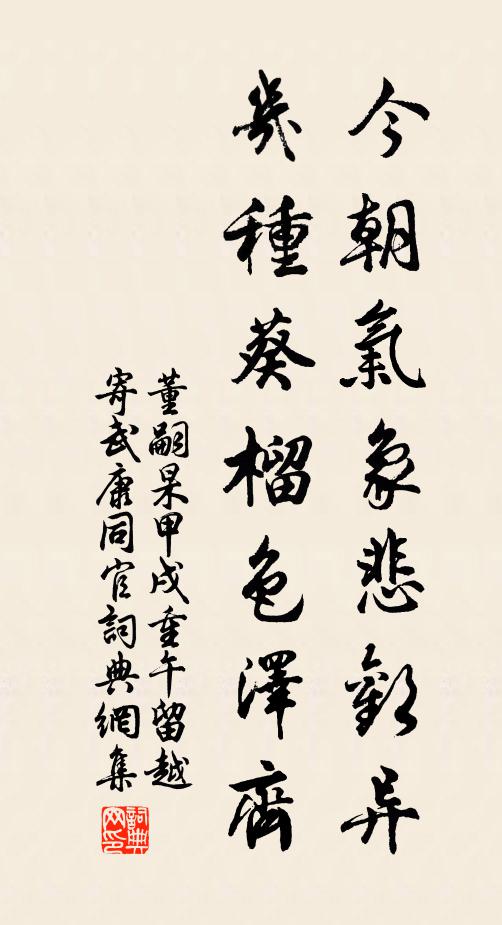 今朝氣象悲歡异
幾種葵榴色澤齊
董嗣杲甲戌重午留越
寄武康同官詞典網集
詞典网印